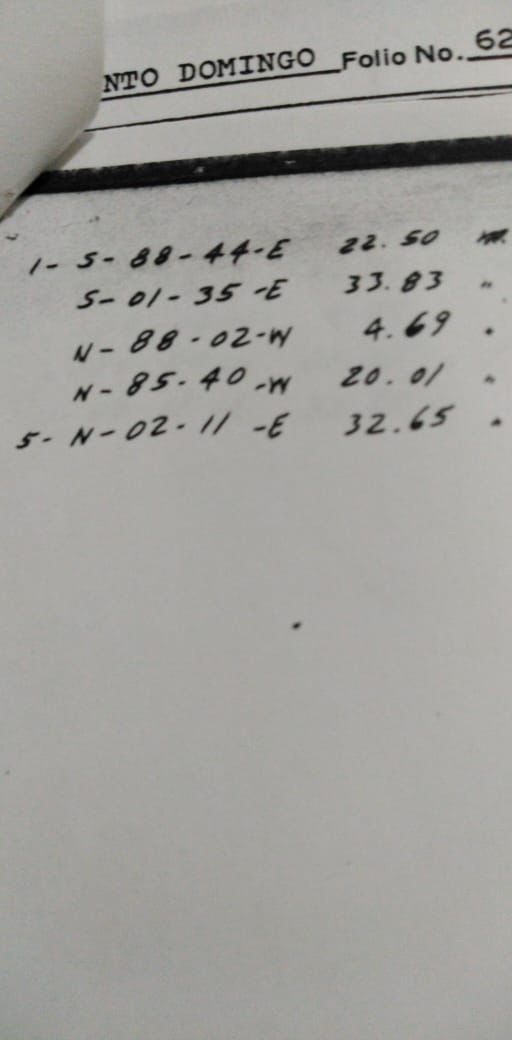 NTO DOMINGO Folio No. 62
1- S- 88-44-E 22.50 m.
S- 01-35-E 33.83 "
N- 88-02-W 4.69 "
N- 85-40-W 20.01 "
5- N-02-11-E 32.65 "